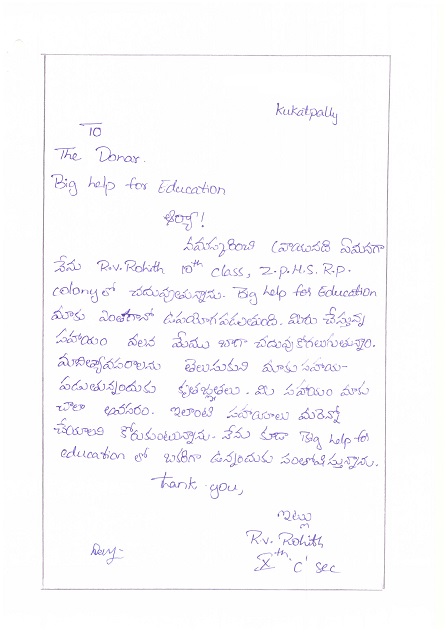 Kukatpally
To
The Donar.
Big help for Education
ఆర్యా!
నమస్కరించి వ్రాయునది ఏమనగా
నేను R.V. Rohith 10th class, Z.P.H.S. R.P.
colony లో చదువుతున్నాను. Big help for Education
మాకు ఎంతగానో ఉపయోగపడుతుంది. మీరు చేస్తున్న
సహాయం వలన మేము బాగా చదువుకోగలుగుతున్నాం.
మా విద్యావసరాలను తెలుసుకుని మాకు సహాయ-
పడుతున్నందుకు కృతజ్ఞతలు. మీ సహాయం మాకు
చాలా అవసరం. ఇలాంటి సహాయాలు మరెన్నో
చేయాలని కోరుకుంటున్నాను. నేను కూడా Big help for
education లో ఒకరిగా ఉన్నందుకు సంతోషిస్తున్నాను.
Thank you,
ఇట్లు
R.V. Rohith
Xth 'C' sec